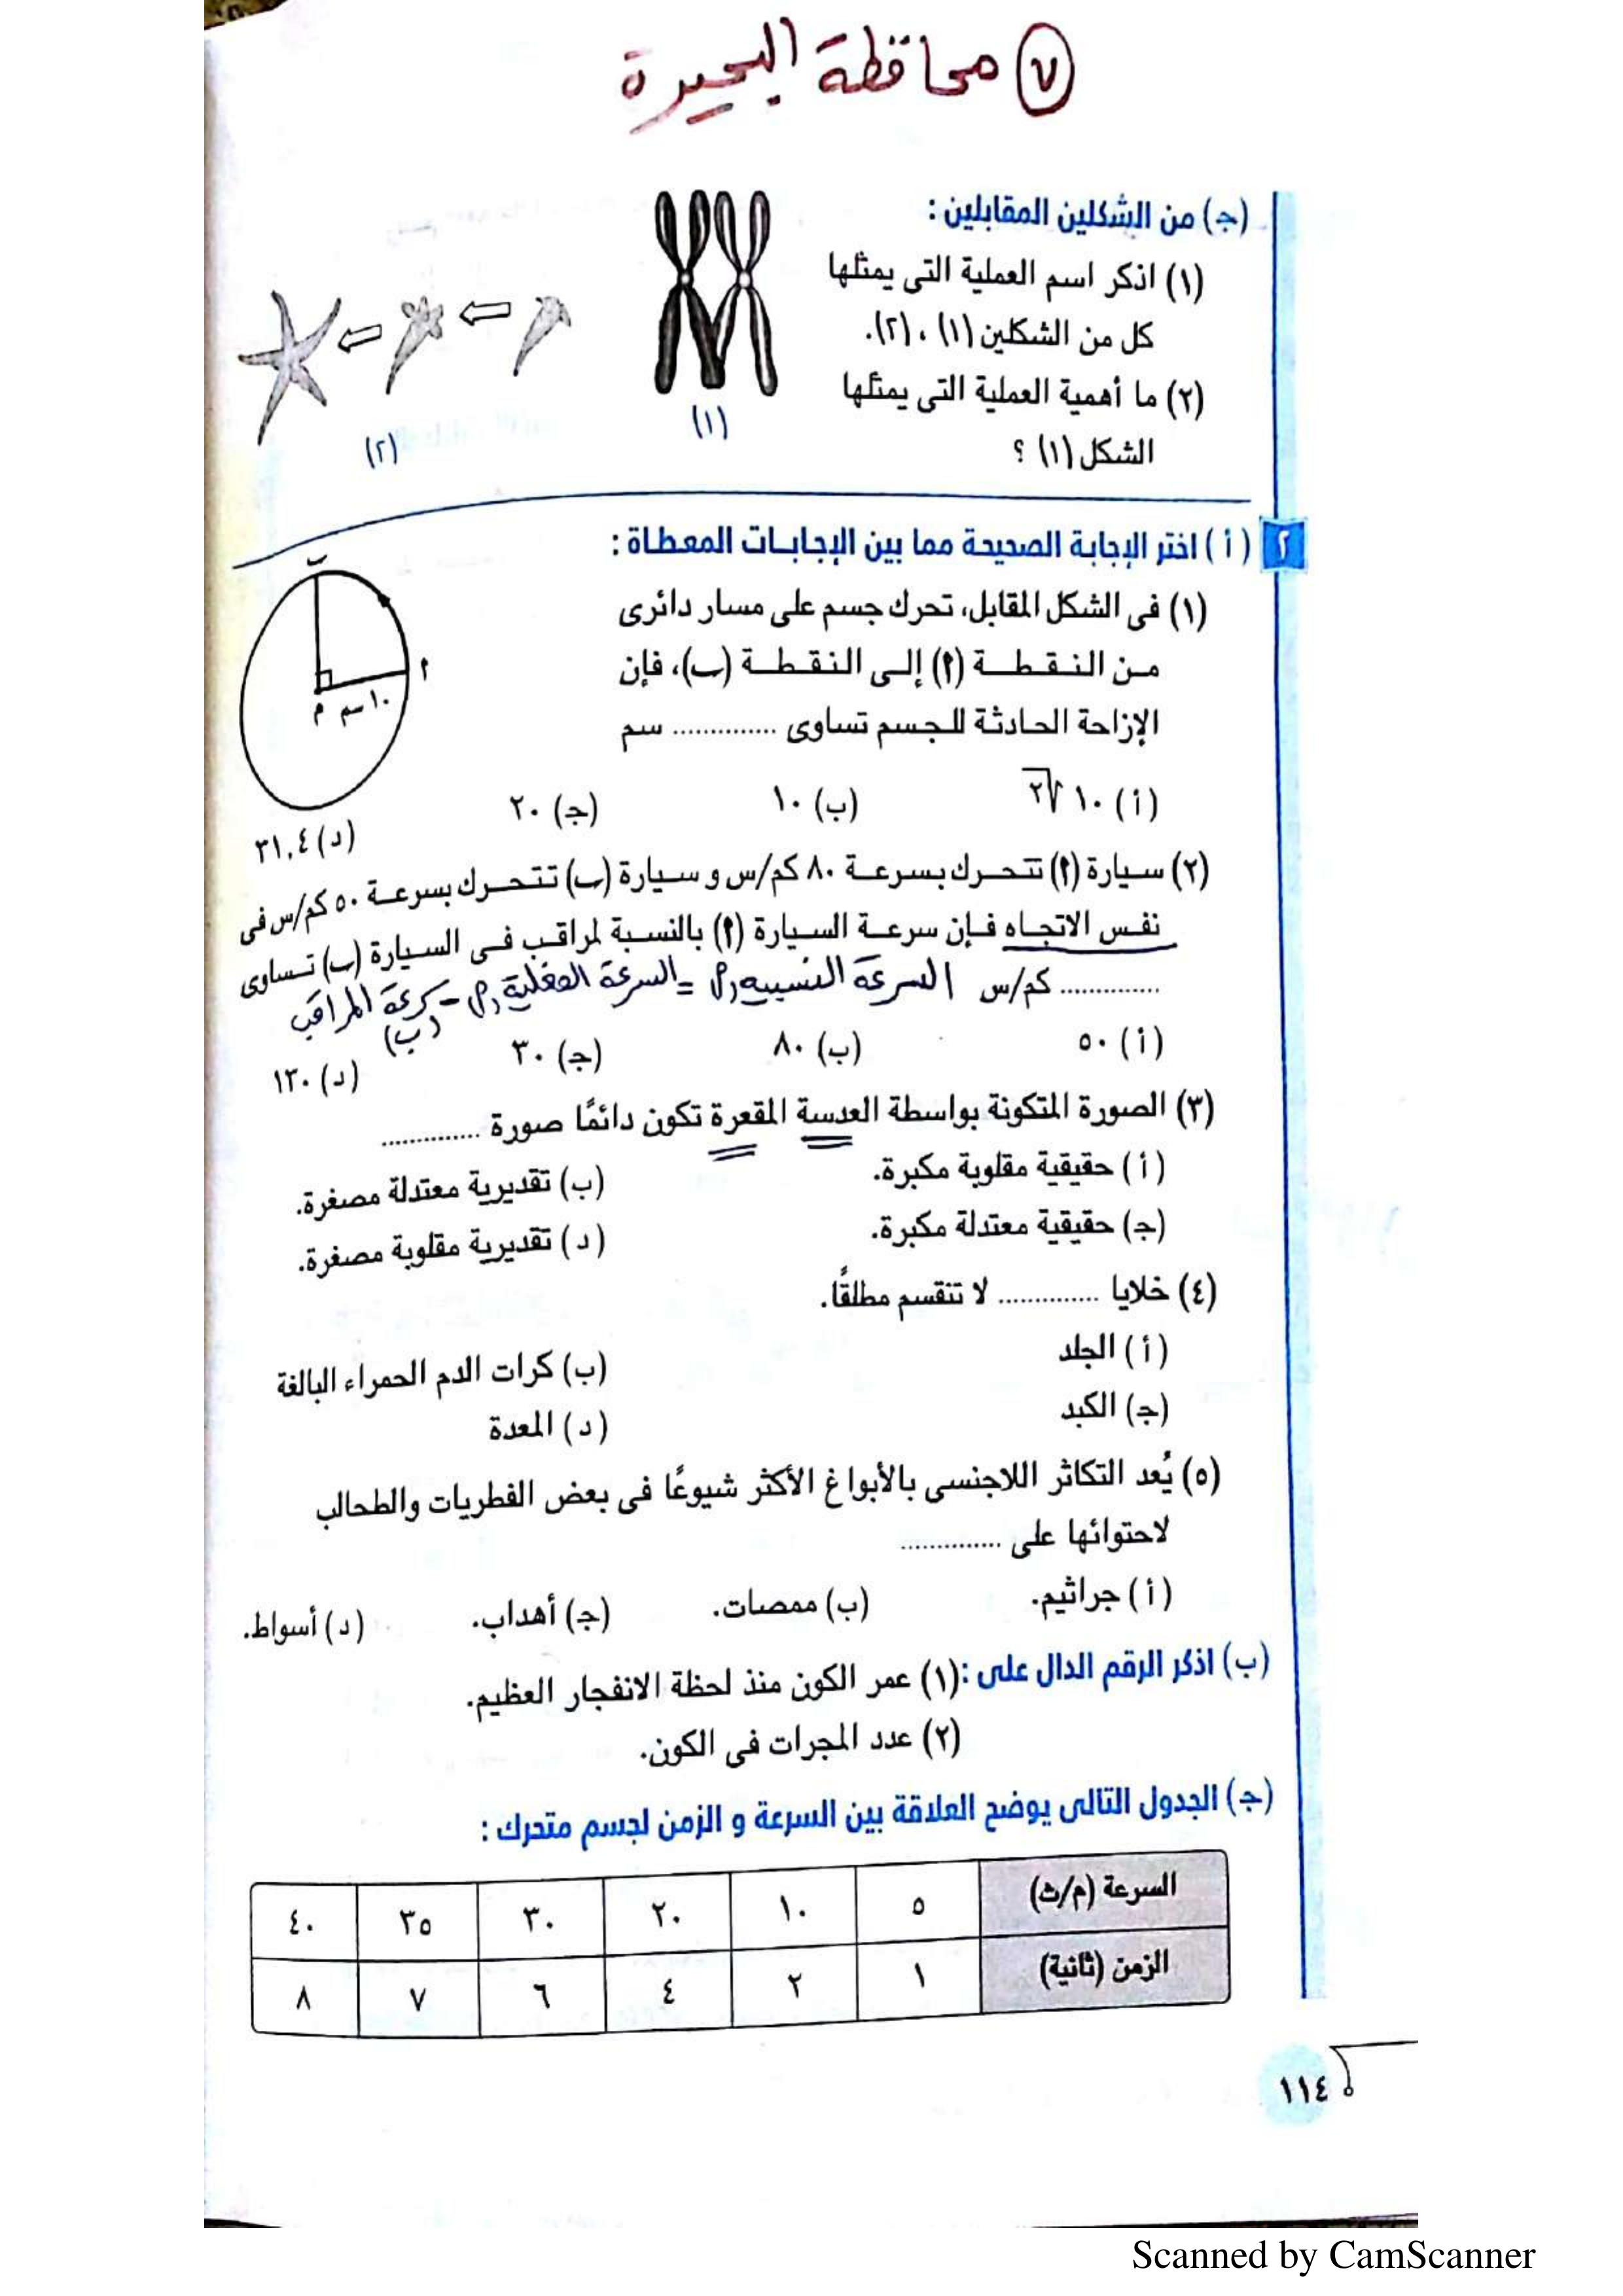 ٧ محافظة البحيرة
(جـ) من الشكلين المقابلين :
(١) اذكر اسم العملية التى يمثلها
كل من الشكلين (١) ، (٢).
(٢) ما أهمية العملية التى يمثلها
الشكل (١) ؟
(١)
(٢)
٢ ( أ ) اختر الإجابة الصحيحة مما بين الإجابات المعطاة :
(١) فى الشكل المقابل، تحرك جسم على مسار دائرى
من النقطة (٩) إلى النقطة (ب)، فإن
الإزاحة الحادثة للجسم تساوى .............. سم
ب
٩
م
١٠ سم
( أ ) ١٠ √٢ (ب) ١٠ (جـ) ٢٠ (د) ٣١,٤
(٢) سيارة (٩) تتحرك بسرعة ٨٠ كم/س و سيارة (ب) تتحرك بسرعة ٥٠ كم/س فى
نفس الاتجاه فإن سرعة السيارة (٩) بالنسبة لمراقب فى السيارة (ب) تساوى
.............. كم/س
السرعة النسبيه م = السرعة الفعلية م - سرعة المراقب
(ب)
( أ ) ٥٠ (ب) ٨٠ (جـ) ٣٠ (د) ١٣٠
(٣) الصورة المتكونة بواسطة العدسة المقعرة تكون دائمًا صورة ..............
( أ ) حقيقية مقلوبة مكبرة. (ب) تقديرية معتدلة مصغرة.
(جـ) حقيقية معتدلة مكبرة. (د) تقديرية مقلوبة مصغرة.
(٤) خلايا .............. لا تنقسم مطلقًا.
( أ ) الجلد (ب) كرات الدم الحمراء البالغة
(جـ) الكبد (د) المعدة
(٥) يُعد التكاثر اللاجنسى بالأبواغ الأكثر شيوعًا فى بعض الفطريات والطحالب
لاحتوائها على ..............
( أ ) جراثيم. (ب) ممصات. (جـ) أهداب. (د) أسواط.
(ب) اذكر الرقم الدال على : (١) عمر الكون منذ لحظة الانفجار العظيم.
(٢) عدد المجرات فى الكون.
(جـ) الجدول التالى يوضح العلاقة بين السرعة و الزمن لجسم متحرك :
السرعة (م/ث) ٥ ١٠ ٢٠ ٣٠ ٣٥ ٤٠
الزمن (ثانية) ١ ٢ ٤ ٦ ٧ ٨
١١٤
Scanned by CamScanner